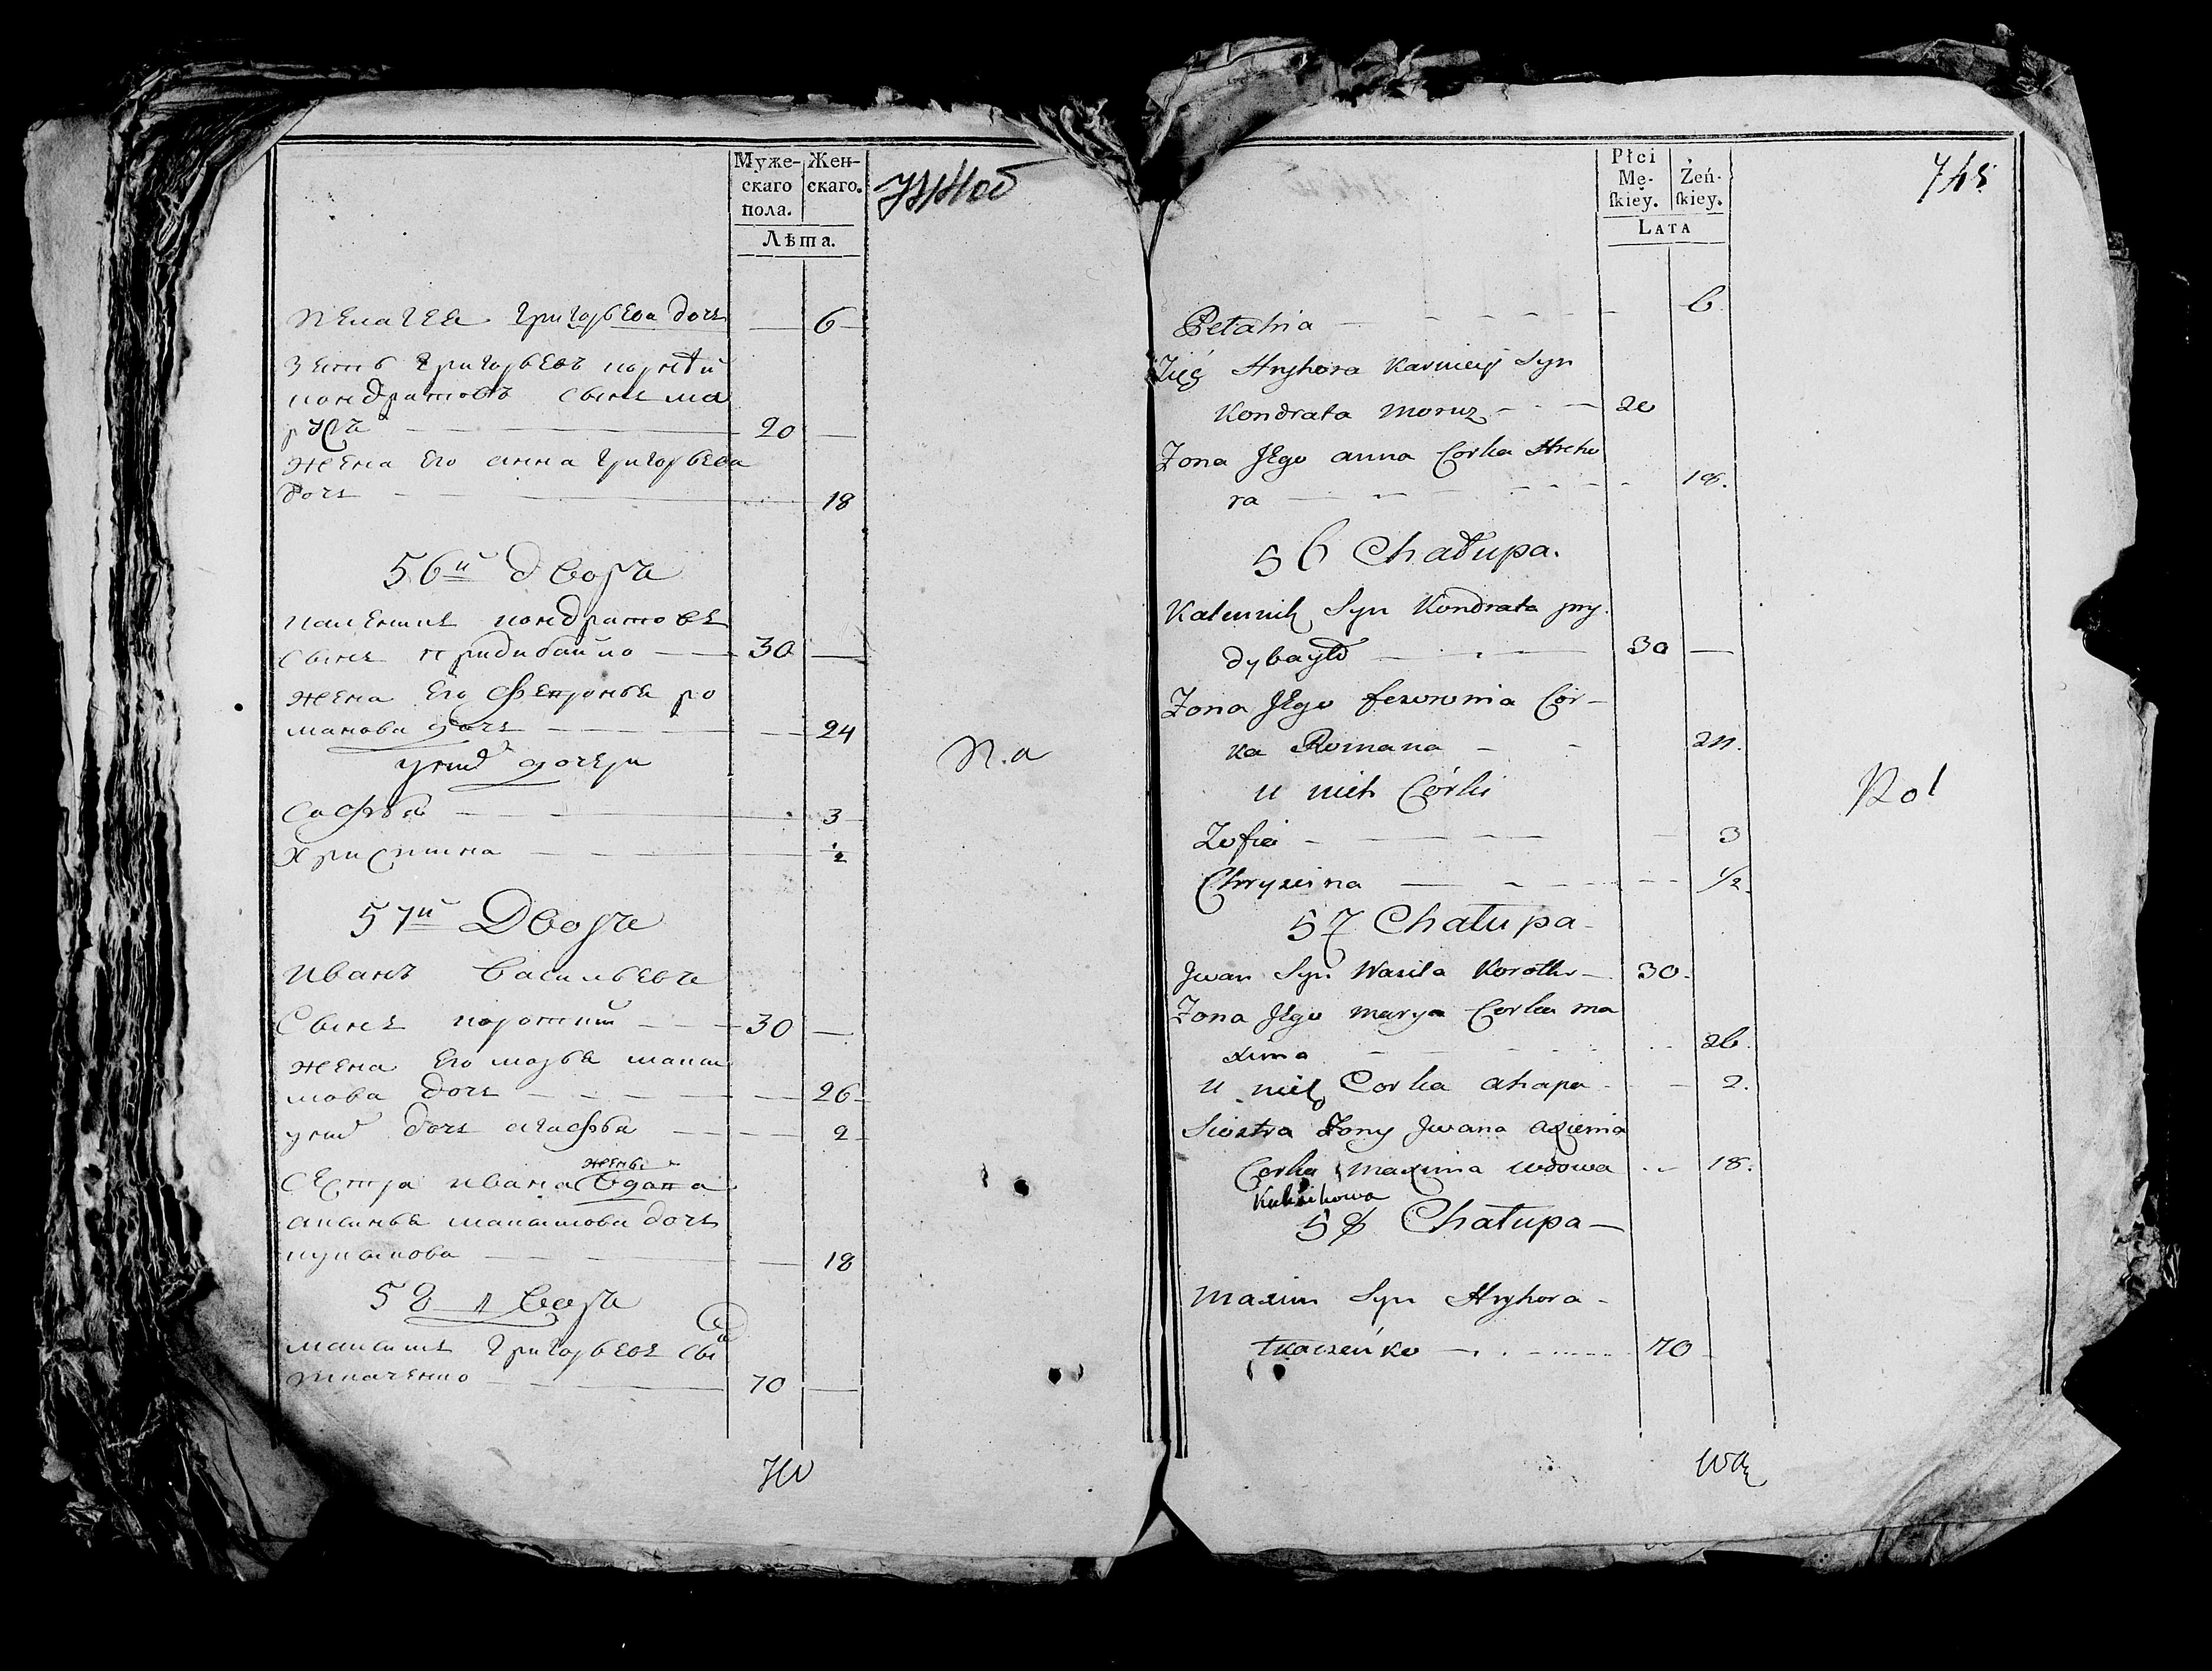 Муже-
скаго
пола.
Жен-
скаго.
Лѣта.
Пелагеа Григорьева дочь — 6
Зять Григорьевъ корнѣй
кондратовъ сынъ мо
рузъ — 20 —
жена его анна Григорьева
дочь — 18
56й дворъ
каленикъ кондратовъ
сынъ придибайло — 30 —
жена его Февронья ро
манова дочь — 24
у них дочери
Софья — 3
Христина — ½
57й Дворъ
Иванъ Васильевъ
Сынъ короткий — 30 —
жена его марья макси
мова дочь — 26
у них дочь агафья — 2
жены
сестра ивана вдова
аксинья максимова дочь
— 18
58 дворъ
максимъ Григорьевъ сынъ
ткаченко — 70 —
Płci
Mę-
skiey.
Żeń-
skiey.
LATA
745
Pelahia — 6.
Zięć Hryhora Karniey Syn
Kondrata Moruz — 20
Zona Jego anna Corka Hreho
ra — 18.
56 Chałupa.
Kalennik Syn Kondrata pry.
dybayło — 30 —
Zona Jego fewronia Cór-
ka Romana — 24.
u nich Córki
Zofia — 3
Chrysina — 1/2.
57 Chałupa —
Jwan Syn Wasila Korotki — 30.
Zona Jego marya Corka ma
xima — 26.
u nich Corka ahapa — 2.
Siostra Zony Jwana axienia
Corka maxima wdowa — 18.
58 Chałupa —
Maxim Syn Hryhora —
tkaczeńko — 70